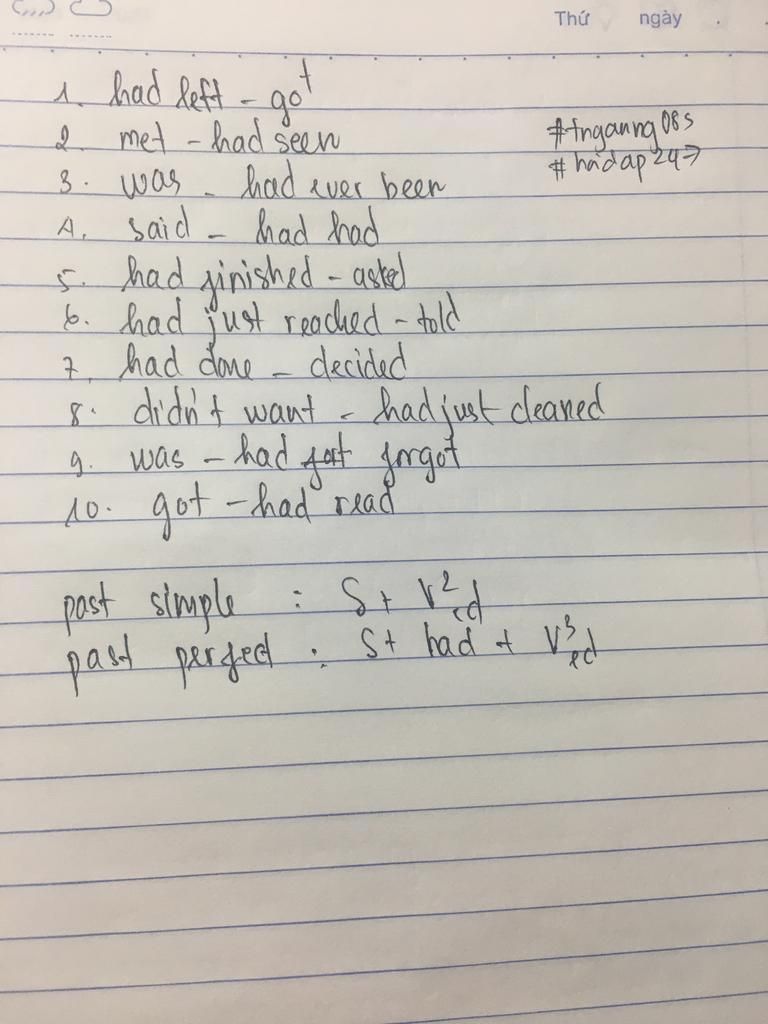 Thứ ngày
1. had left - got
2. met - had seen
#tnganng08s
#hoidap247
3. was - had ever been
4. said - had had
5. had finished - asked
6. had just reached - told
7. had done - decided
8. didn't want - had just cleaned
9. was - had forgot
10. got - had read
past simple : S + V2ed
past perfect : S + had + V3ed